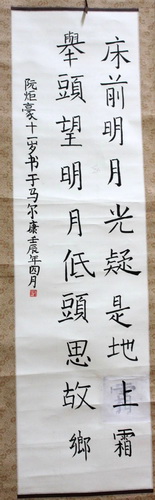 床前明月光疑是地上霜
舉頭望明月低頭思故鄉
阮炬豪十一岁书于马尔康壬辰年四月